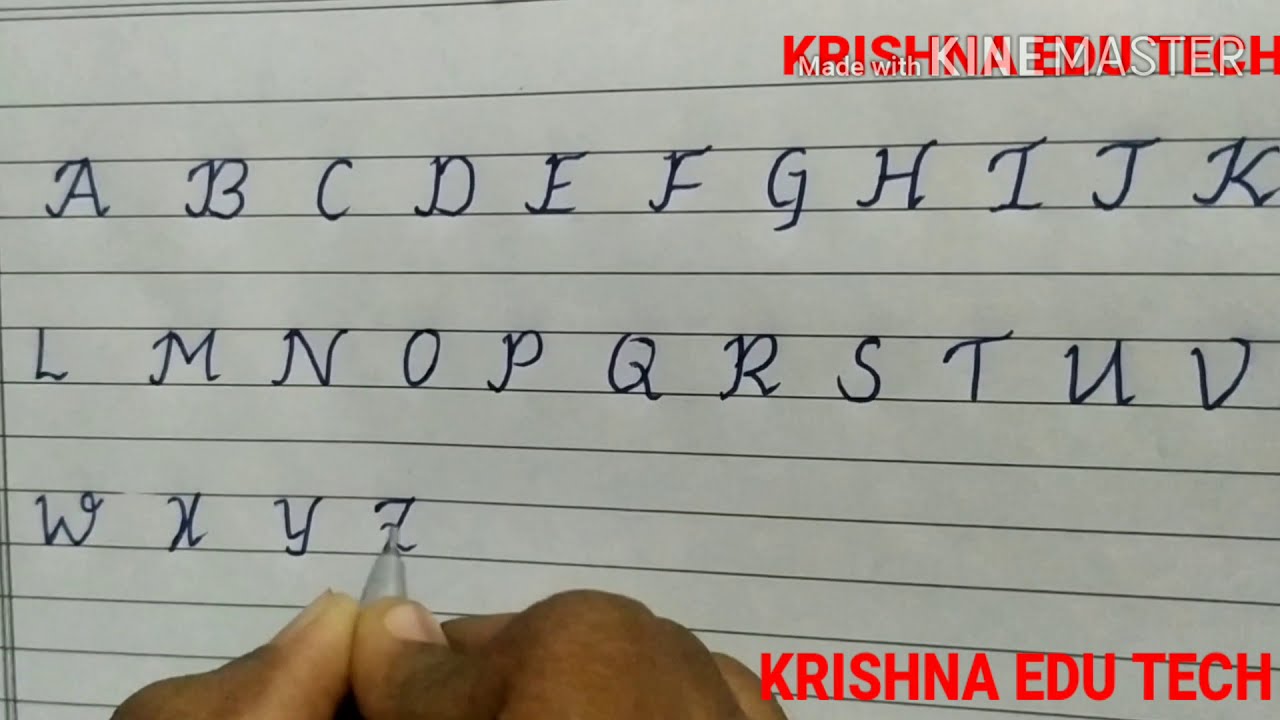 KRISHNA EDU TECH
Made with KINEMASTER
A B C D E F G H I J K
L M N O P Q R S T U V
W X Y Z
KRISHNA EDU TECH